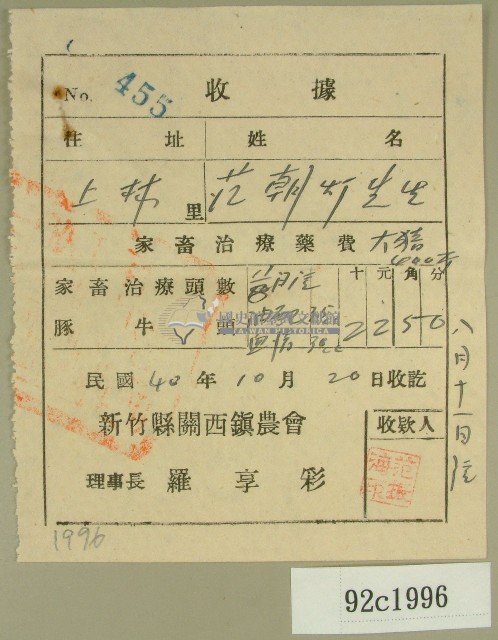 No. 455
收據
住址 姓名
上林里 范朝灯先生
家畜治療藥費 大猪
600斤
家畜治療頭數 十元角分
豚牛 3頭 22 50
民國40年10月20日收訖
新竹縣關西鎮農會 收欵人
理事長 羅享彩
八月十一日注
國史館臺灣文獻館
TAIWAN HISTORICA
1996
92c1996